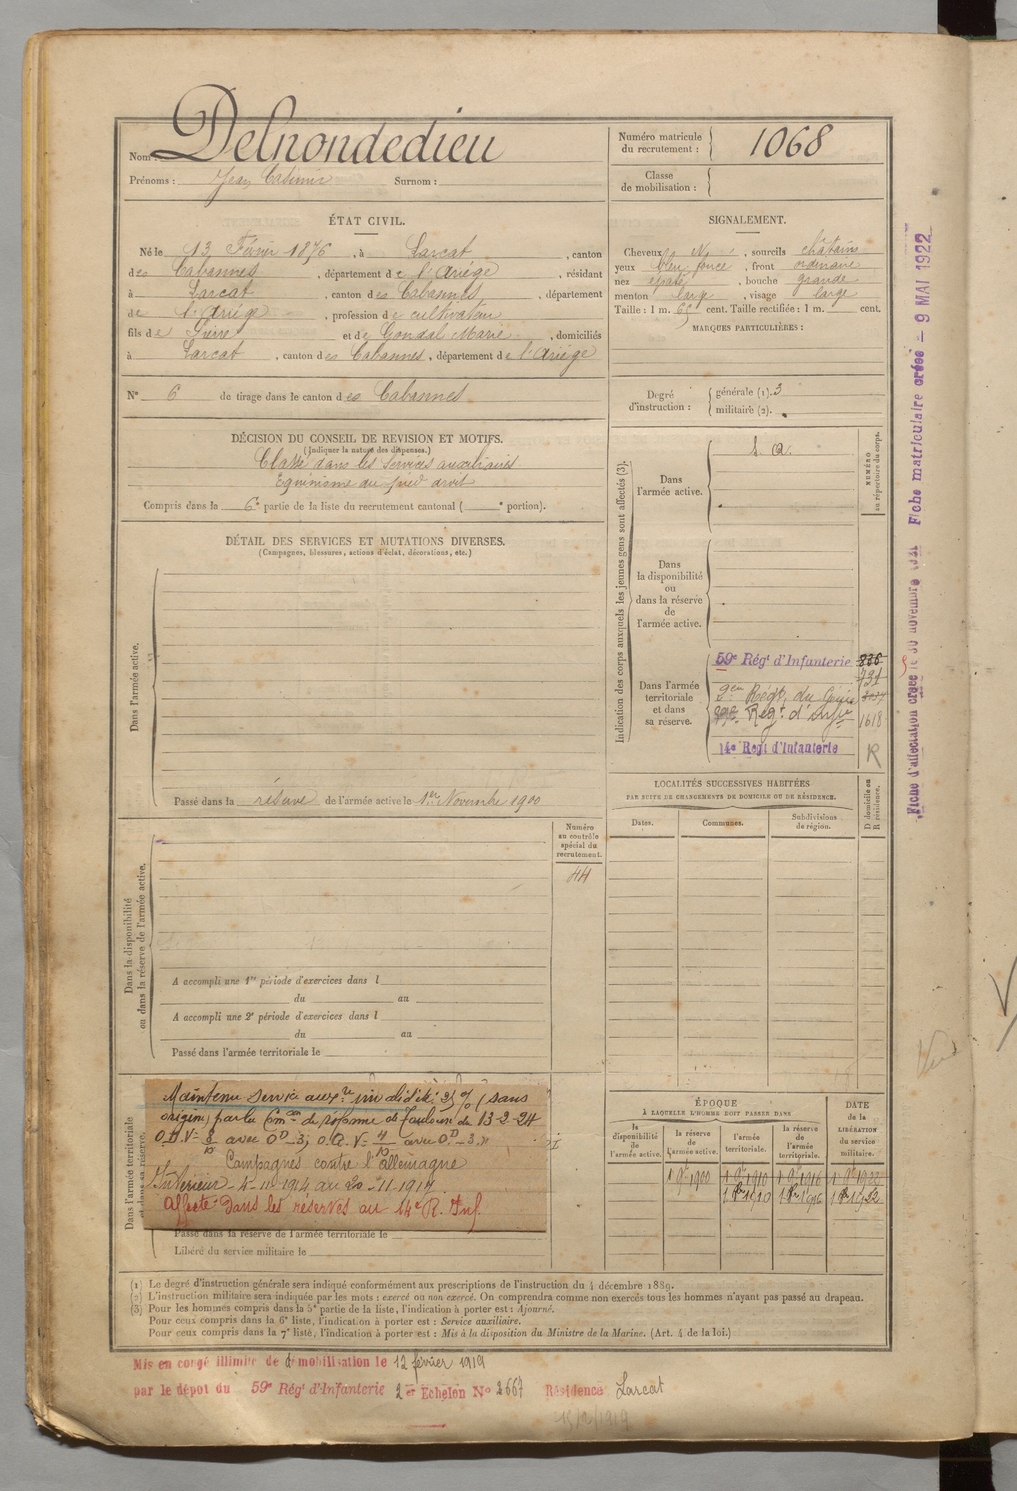 Nom : Delnondedieu
Prénoms : Jean Casimir Surnom :
Numéro matricule du recrutement : 1068
Classe de mobilisation :
ÉTAT CIVIL.
Né le 13 Février 1876, à Larcat, canton
des Cabannes, département de l'Ariège, résidant
à Larcat, canton des Cabannes, département
de l'Ariège, profession de cultivateur
fils de Pierre et de Gondal Marie, domiciliés
à Larcat, canton des Cabannes, département de l'Ariège
N° 6 de tirage dans le canton des Cabannes
SIGNALEMENT.
Cheveux N, sourcils châtains
yeux bleu foncé, front ordinaire
nez épaté, bouche grande
menton large, visage large
Taille : 1 m. 65 cent. Taille rectifiée : 1 m. cent.
MARQUES PARTICULIÈRES :
Degré d'instruction :
générale (1). 3
militaire (2).
DÉCISION DU CONSEIL DE REVISION ET MOTIFS.
(Indiquer la nature des dispenses.)
Classé dans les services auxiliaires
Equinisme du pied droit
Compris dans la 6e partie de la liste du recrutement cantonal ( e portion).
DÉTAIL DES SERVICES ET MUTATIONS DIVERSES.
(Campagnes, blessures, actions d'éclat, décorations, etc.)
Dans l'armée active.
Passé dans la réserve de l'armée active le 1er Novembre 1900
Indication des corps auxquels les jeunes gens sont affectés (3).
Dans l'armée active.
S. a.
NUMÉRO au répertoire du corps.
Dans la disponibilité ou dans la réserve de l'armée active.
Dans l'armée territoriale et dans sa réserve.
59e Régt d'Infanterie 836
731
2em Régt du Génie
Régt d'Infie 1618
14e Regt d'Infanterie R
LOCALITÉS SUCCESSIVES HABITÉES
PAR SUITE DE CHANGEMENTS DE DOMICILE OU DE RÉSIDENCE.
D domicile ou R résidence.
Dates. Communes. Subdivisions de région.
Numéro au contrôle spécial du recrutement.
44
Dans la disponibilité ou dans la réserve de l'armée active.
A accompli une 1re période d'exercices dans l
du au
A accompli une 2e période d'exercices dans l
du au
Passé dans l'armée territoriale le
Dans l'armée territoriale et dans sa réserve.
Maintenu service auxre invalidité 25 % (sans
origine) par la Comon de réforme de Toulouse du 13-2-24
Campagnes contre l'Allemagne
Intérieur 4-11-1914 au 20-11-1917
Affecté dans les réserves au 14e R. Inf.
Passé dans la réserve de l'armée territoriale le
Libéré du service militaire le
ÉPOQUE
À LAQUELLE L'HOMME DOIT PASSER DANS
DATE de la LIBÉRATION du service militaire.
la disponibilité de l'armée active.
la réserve de l'armée active.
l'armée territoriale.
la réserve de l'armée territoriale.
1 9re 1900 1 9re 1910 1 9re 1916 1 9re 1922
1 8re 1910 1 8re 1916 1 8re 1922
(1) Le degré d'instruction générale sera indiqué conformément aux prescriptions de l'instruction du 4 décembre 1889.
(2) L'instruction militaire sera indiquée par les mots : exercé ou non exercé. On comprendra comme non exercés tous les hommes n'ayant pas passé au drapeau.
(3) Pour les hommes compris dans la 5e partie de la liste, l'indication à porter est : Ajourné.
Pour ceux compris dans la 6e liste, l'indication à porter est : Service auxiliaire.
Pour ceux compris dans la 7e liste, l'indication à porter est : Mis à la disposition du Ministre de la Marine. (Art. 4 de la loi.)
Mis en congé illimité de démobilisation le 12 février 1919
par le dépôt du 59e Rég' d'Infanterie 2er Echelon N° 2667 Résidence Larcat
Fiche d'affectation créée le 30 novembre 1921 Fiche matriculaire créée - 9 MAI 1922